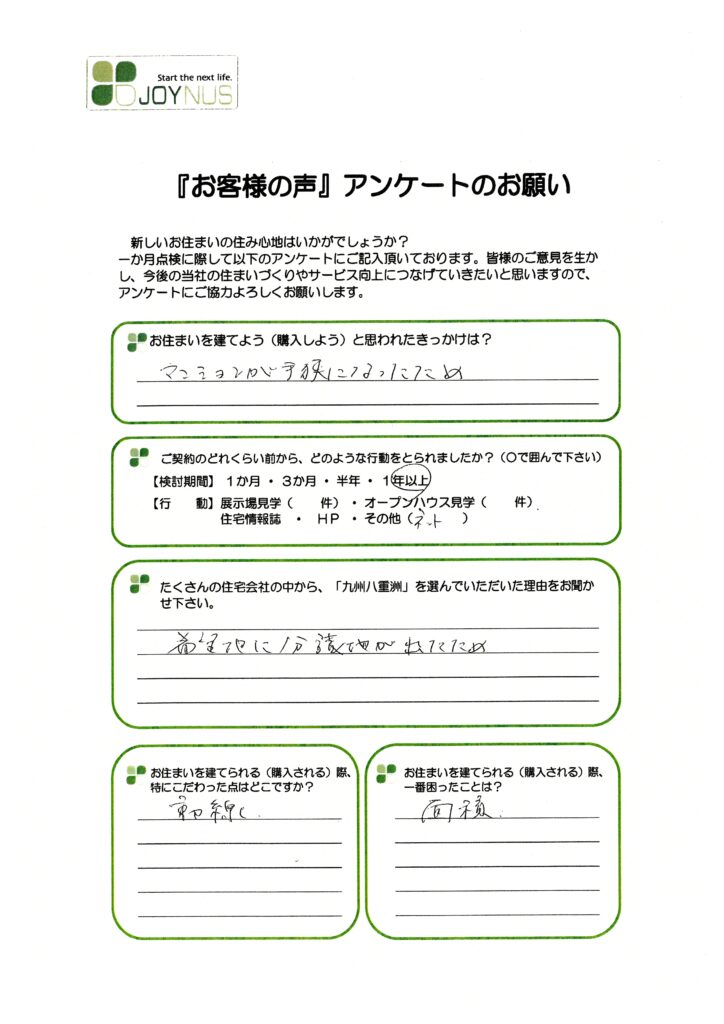 Start the next life.
JOYNUS
『お客様の声』アンケートのお願い
新しいお住まいの住み心地はいかがでしょうか？
一か月点検に際して以下のアンケートにご記入頂いております。皆様のご意見を生か
し、今後の当社の住まいづくりやサービス向上につなげていきたいと思いますので、
アンケートにご協力よろしくお願いします。
お住まいを建てよう（購入しよう）と思われたきっかけは？
マンションが手狭になったため
ご契約のどれくらい前から、どのような行動をとられましたか？（○で囲んで下さい）
【検討期間】 １か月 ・ ３か月 ・ 半年 ・ １年以上
【行　動】 展示場見学（　　件） ・ オープンハウス見学（　　件）
住宅情報誌　・　ＨＰ　・ その他（ネット　）
たくさんの住宅会社の中から、「九州八重洲」を選んでいただいた理由をお聞か
せ下さい。
希望地に分譲地が出たため
お住まいを建てられる（購入される）際、
特にこだわった点はどこですか？
動線
お住まいを建てられる（購入される）際、
一番困ったことは？
面積